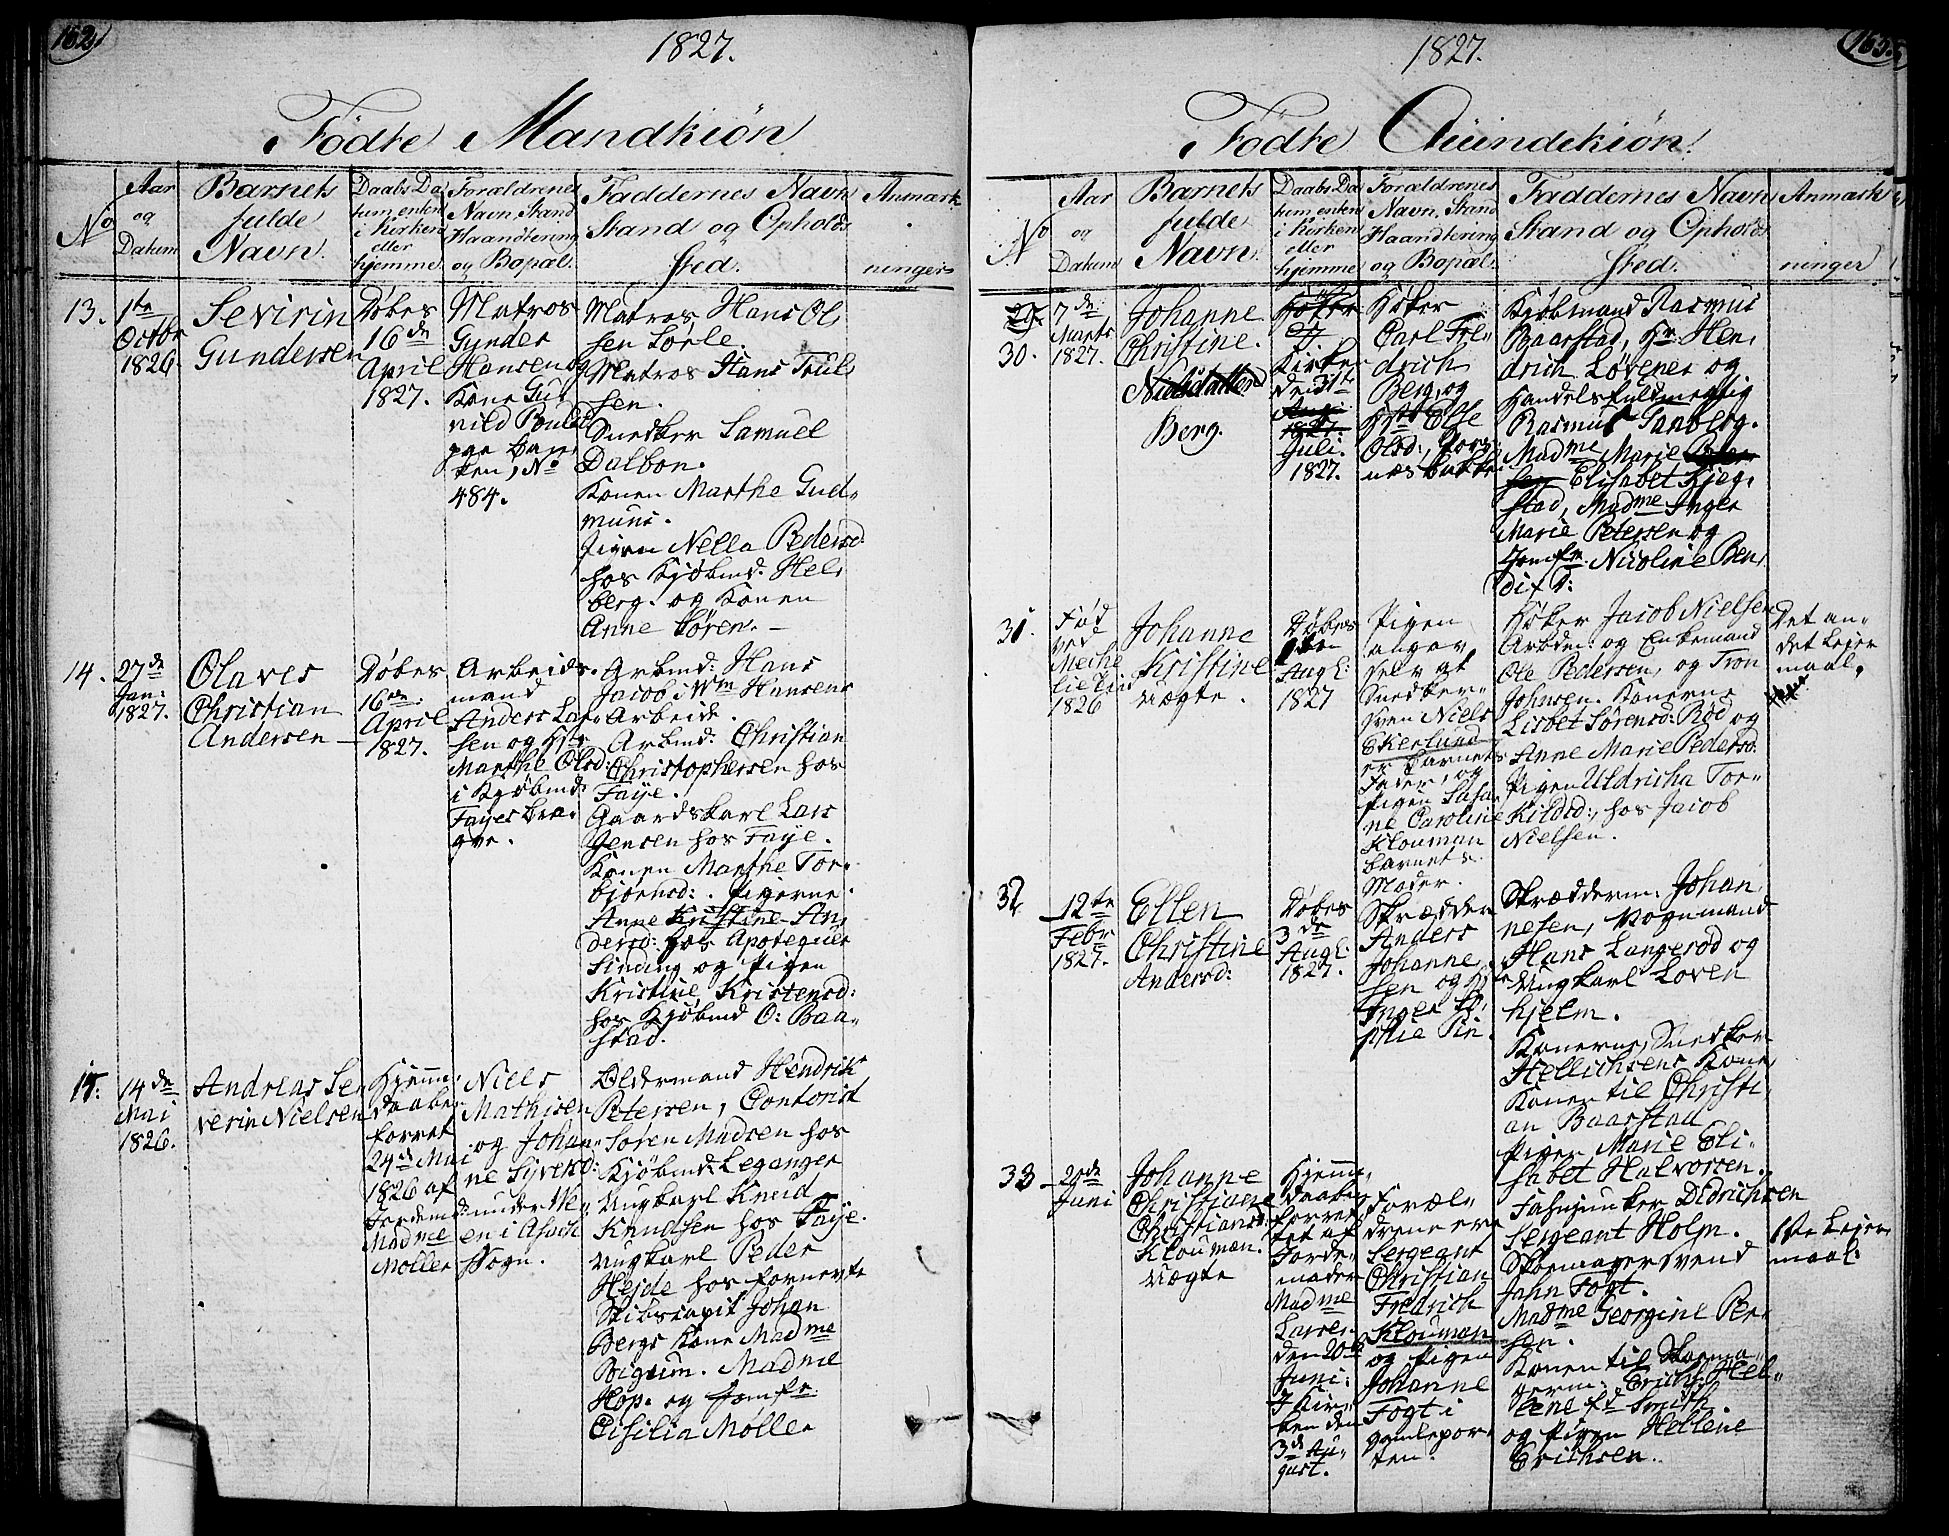 162
1827.
Födte Mandkiön
No
Aar
og
Datum
Barnets
fulde
Navn.
Daabs Da
tum enten
i Kirken
eller
hjemme
Forældrenes
Navn, Stand
Haandtering
og Bopæl.
Faddernes Navn
Stand og Opholds
sted.
Anmærk
ninger
13.
1te
Octbr
1826
Sevirin
Gundersen
Döbes
16de
April
1827.
Matros
Gunder
Hansen og
Kone Gun
vild Pouls
paa Ban
ken, No
484.
Matros Hans Ol
sen Lörle.
Matros Hans Truls
sen.
Snedker Samuel
Dalbon.
Konen Marthe Gud„
muns.
Pigen Nella Pedersd.
hos Kjöbmd. Hel„
berg. og Konen
Anne Sören. —
14.
27de
Jan:
1827.
Olaves
Christian
Andersen —
Döbes
16de
April
1827.
Arbeids„
mand
Anders Lar„
sen og Hstr
Marthe Olsd:
i Kjöbmd.
Fayes Bra„
gve.
Arbmd: Hans
Jacob i Wm Hansens
Arbeide.
Arbmd: Christian
Christophersen hos
Faye.
Gaardskarl Lars
Jensen hos Faye.
Konen Marthe Tor„
biörnsd: . Pigerne
Anne Kristine An„
dersd: hos Apoteqver
Sinding og Pigen
Kristine Kristensd:
hos Kjöbmd O: Baa„
stad.
15.
14de
Mai
1826.
Andreas Se„
verin Nielsen
Hjemme
daaben
forret
24de Mai
1826 af
Jordemd:
Madme
Möller
Niels
Mathisen
og Johan„
ne Syversd:
under We„
en i Asach
Sogn.
Oldermand Hendrik
Petersen, Contorist
Sören Madsen hos
Kjöbmd: Leganger
Ungkarl Knud
Knudsen hos Faye.
Ungkarl Peder
Hejde hos fornevnte
Skibscapit Johan
Bergs Kone Madme
Bigum. Madme
Hop. og Jomfr
Cisilia Möller
1827.
Födte Qvindekiön.
No
Aar
og
Datum
Barnets
fulde
Navn.
Daabs Da
tum, enten
i Kirken
eller
hjemme
Forældrenes
Navn, Stand
Haandtering
og Bopæl.
Faddernes Navn
Stand og Opholds
sted.
Anmærk
ninger
29.
30.
7de
Marts
1827.
Johanne
Christine.
Berg.
Kirken
den 31te
1827.
Juli.
1827.
Höker
Carl Fre„
drich
Berg, og
Hstr Else
Olsd:
Kjöbmand Rasmus
Baarstad, Hr. Hen„
drich Lövener og
Handelsfuldmegtig
Rasmus Sandberg.
Madme Marie
Elisabet Kjeg„
stad, Madme Inger
Marie Petersen og
Jomfr. Nicoline Ben„
dixd:
31.
Föd
ved
Miche
1826
Johanne
Kristine
Uægte.
Döbes
Augt:
1827
Pigen
angav
selv at
Snedker„
sven Niels
Ekerlund
er Barnets
Fader, og
Pigen Safa„
ne Caroline
Klouman
Barnets
Moder.
Höker Jacob Nielsen
Arbdm: og Enkemand
Ole Pedersen, og Tron
Johnsen. Konerne
Lisbet Sörensd: Röd og
Anne Marie Pedersd.
Pigen Uldricha Tor„
kildsd:, hos Jacob
Nielsen.
Det an„
det Leier
maal.
32
12te
Febr
1827.
Ellen
Christine
Andersd:
Döbes
3de
Augt:
1827.
Skrædder
Anders
Johanne„
sen og Hstr
Inger So„
phie Pin.
Skrædderm: Johan„
nesen, Vognmand
Hans Langeröd og
Ungkarl Loven
hjelm.
Konerne, Snedker
Hellichsens Kone,
Konen til Christi„
an Baarstad
Pigen Marie Eli„
sabet Halvorsen.
33
20de
Juni
Johanne
Christiane
Christiansd:
Klouman.
Uægte
Hjemme„
daaben
forret„
tet af
Jorde„
moder
Madme
Larsen
den 20de
Juni.
I Kir„
ken den
3de Au„
gust.
Foræl„
drene ere
Sergeant
Christian
Fredrich
Klouman
og Pigen
Johanne
Fogt i
gamlepor„
ten.
Fahnjunker Didrichsen
Sergeant Holm.
Skoemagersvend
Jahn Fogt.
Madme Georgine Per„
sen.
Konen til Skoma„
germ: Erichs: Hel„
lene fd. Smith.
og Pigen Hellene
Erichsen.
1ste Leier
maal